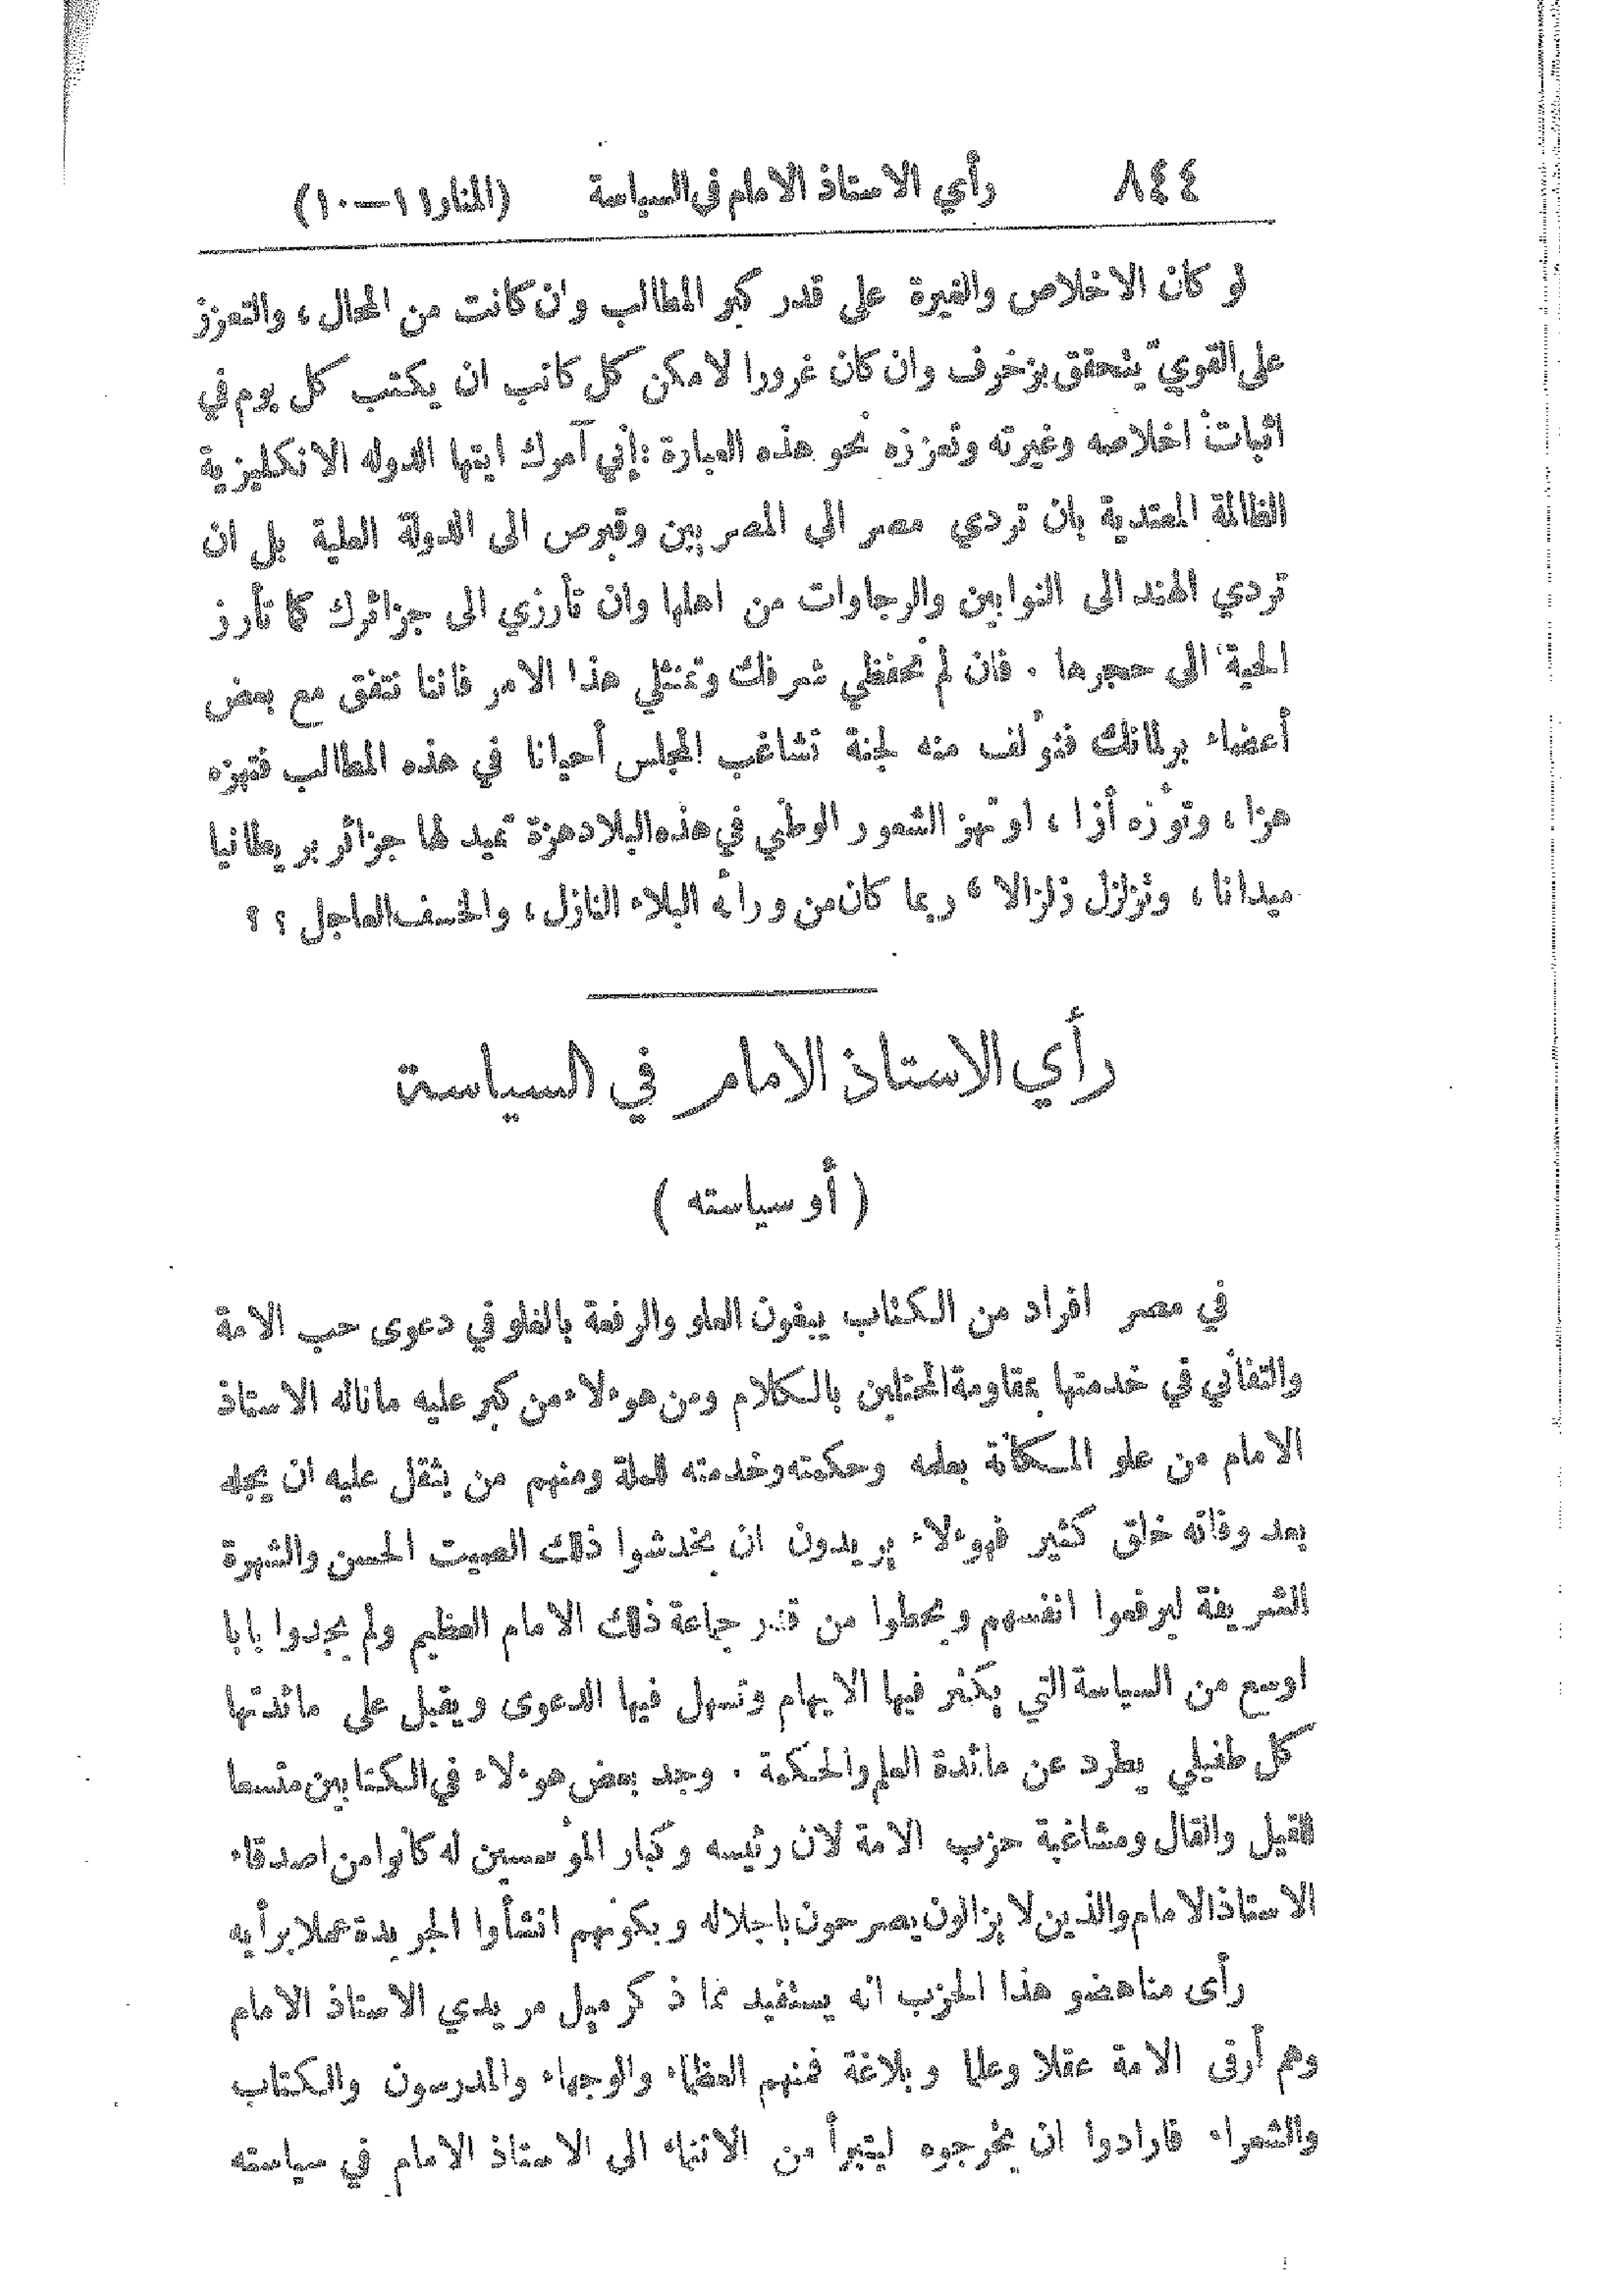 ٨٤٤ رأي الاستاذ الامام في السياسة (المنار ١٠–١١)
لو كان الاخلاص والغيرة على قدر كبر المطالب وان كانت من المحال ، والتعزز
على القويّ يتحقق بزخرف وان كان غرورا لامكن كل كاتب ان يكتب كل يوم في
اثبات اخلاصه وغيرته وتعززه نحو هذه العبارة : إني آمرك ايتها الدوله الانكليزية
الظالمة المعتدية بان تردي مصر الى المصريين وقبرص الى الدولة العلية بل ان
تردي الهند الى النوابين والرجاوات من اهلها وان تأرزي الى جزائرك كما تأرز
الحية الى حجرها . فان لم تحفظي شرفك وتمتثلي هذا الامر فاننا نتفق مع بعض
أعضاء برلمانك فنؤلف منه لجنة تشاغب المجلس أحيانا في هذه المطالب فتهزه
هزا ، وتؤزه أزا ، او تهز الشعور الوطني في هذه البلاد هزة تميد لها جزائر بريطانيا
ميدانا ، وتزلزل زلزالا ، ربما كان من ورائه البلاء النازل ، والخسف العاجل ؟ ؟
رأي الاستاذ الامام في السياسة
( أو سياسته )
في مصر افراد من الكتاب يبغون العلو والرفعة بالغلو في دعوى حب الامة
والتفاني في خدمتها بمقاومة المحتلين بالكلام ومن هؤلاء من كبر عليه ماناله الاستاذ
الامام من علو المكانة بعلمه وحكمته وخدمته للملة ومنهم من يثقل عليه ان يجله
بعد وفاته خلق كثير فهؤلاء يريدون ان يخدشوا ذلك الصيت الحسن والشهرة
الشريفة ليرفعوا انفسهم ويحطوا من قدر جماعة ذلك الامام العظيم ولم يجدوا بابا
اوسع من السياسة التي يكثر فيها الايهام وتسهل فيها الدعوى ويقبل على مائدتها
كل طفيلي يطرد عن مائدة العلم والحكمة . وجد بعض هؤلاء في الكتابين متسعا
للقيل والقال ومشاغبة حزب الامة لان رئيسه وكبار المؤسسين له كانوا من اصدقاء
الاستاذ الامام والذين لا يزالون يصرحون باجلاله وبكونهم انشأوا الجريدة عملا برأيه
رأى مناهضو هذا الحزب انه يستفيد مما ذكر ميل مريدي الاستاذ الامام
وهم أرقى الامة عقلا وعلما وبلاغة فمنهم العظماء والوجهاء والمدرسون والكتاب
والشعراء فارادوا ان يخرجوه ليتبرأ من الانتماء الى الاستاذ الامام في سياسته